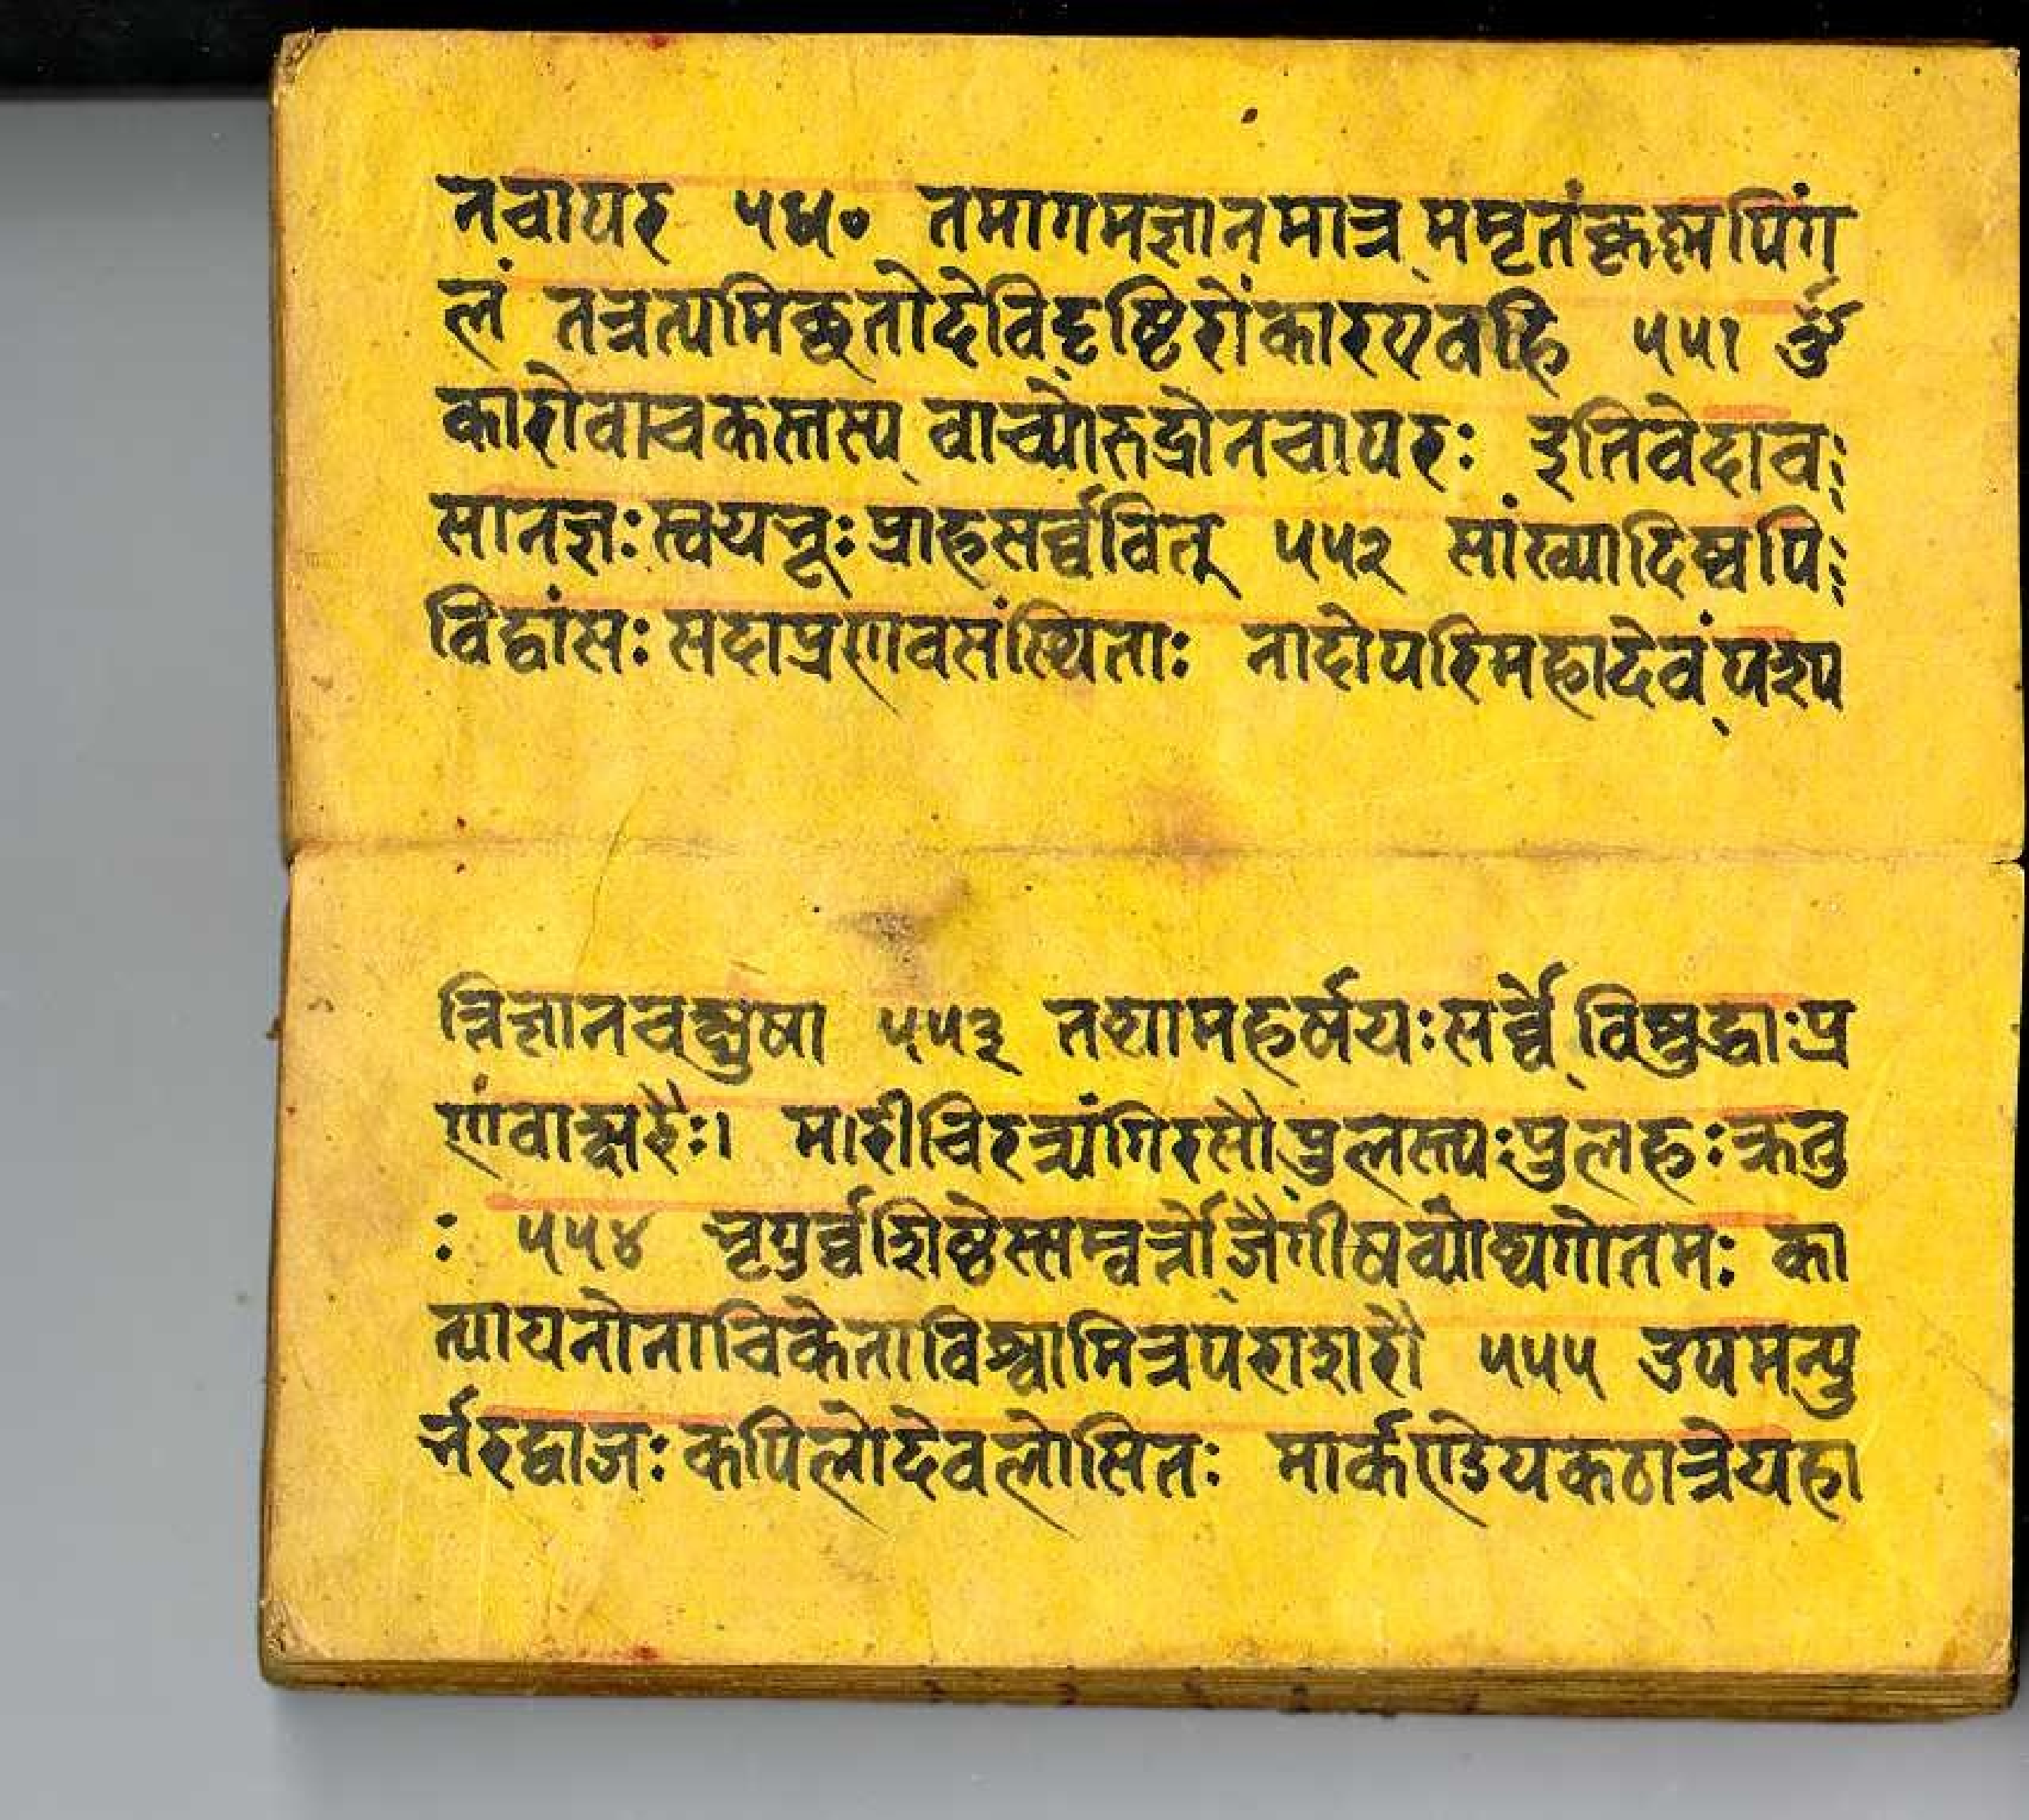 नचापर ५५० तमागमज्ञानमात्र ममृतंकृह्मपिंग
लं तत्रत्यमिक्रुतोदेविदृष्टिरोंकारएवहि ५५१ ॐ
कारोवाचकस्तस्य वाच्योरुद्रोनचापरः इतिवेदाव
सानज्ञः स्वयम्भूः प्राहसर्व्ववित् ५५२ सांख्यादिष्वपि
विद्वांसः सदाप्रणवसंस्थिताः नादोपरिमहादेवं पश्य
न्विज्ञानचक्षुषा ५५३ तथामहर्षयः सर्व्वे विशुद्धाःप्र
णंवाक्षरैः। मारीचिरत्र्यंगिरसौपुलस्त्यःपुलहःक्रतु
ः ५५४ भृगुर्व्वशिष्ठेस्सम्वर्त्तोजैगीषव्योथगोतमः का
त्यायनोनाचिकेताविश्वामित्रपराशरौ ५५५ उपमन्यु
र्भरद्वाजः कपिलोदेवलोसितः मार्कण्डेयकठात्रेयहा